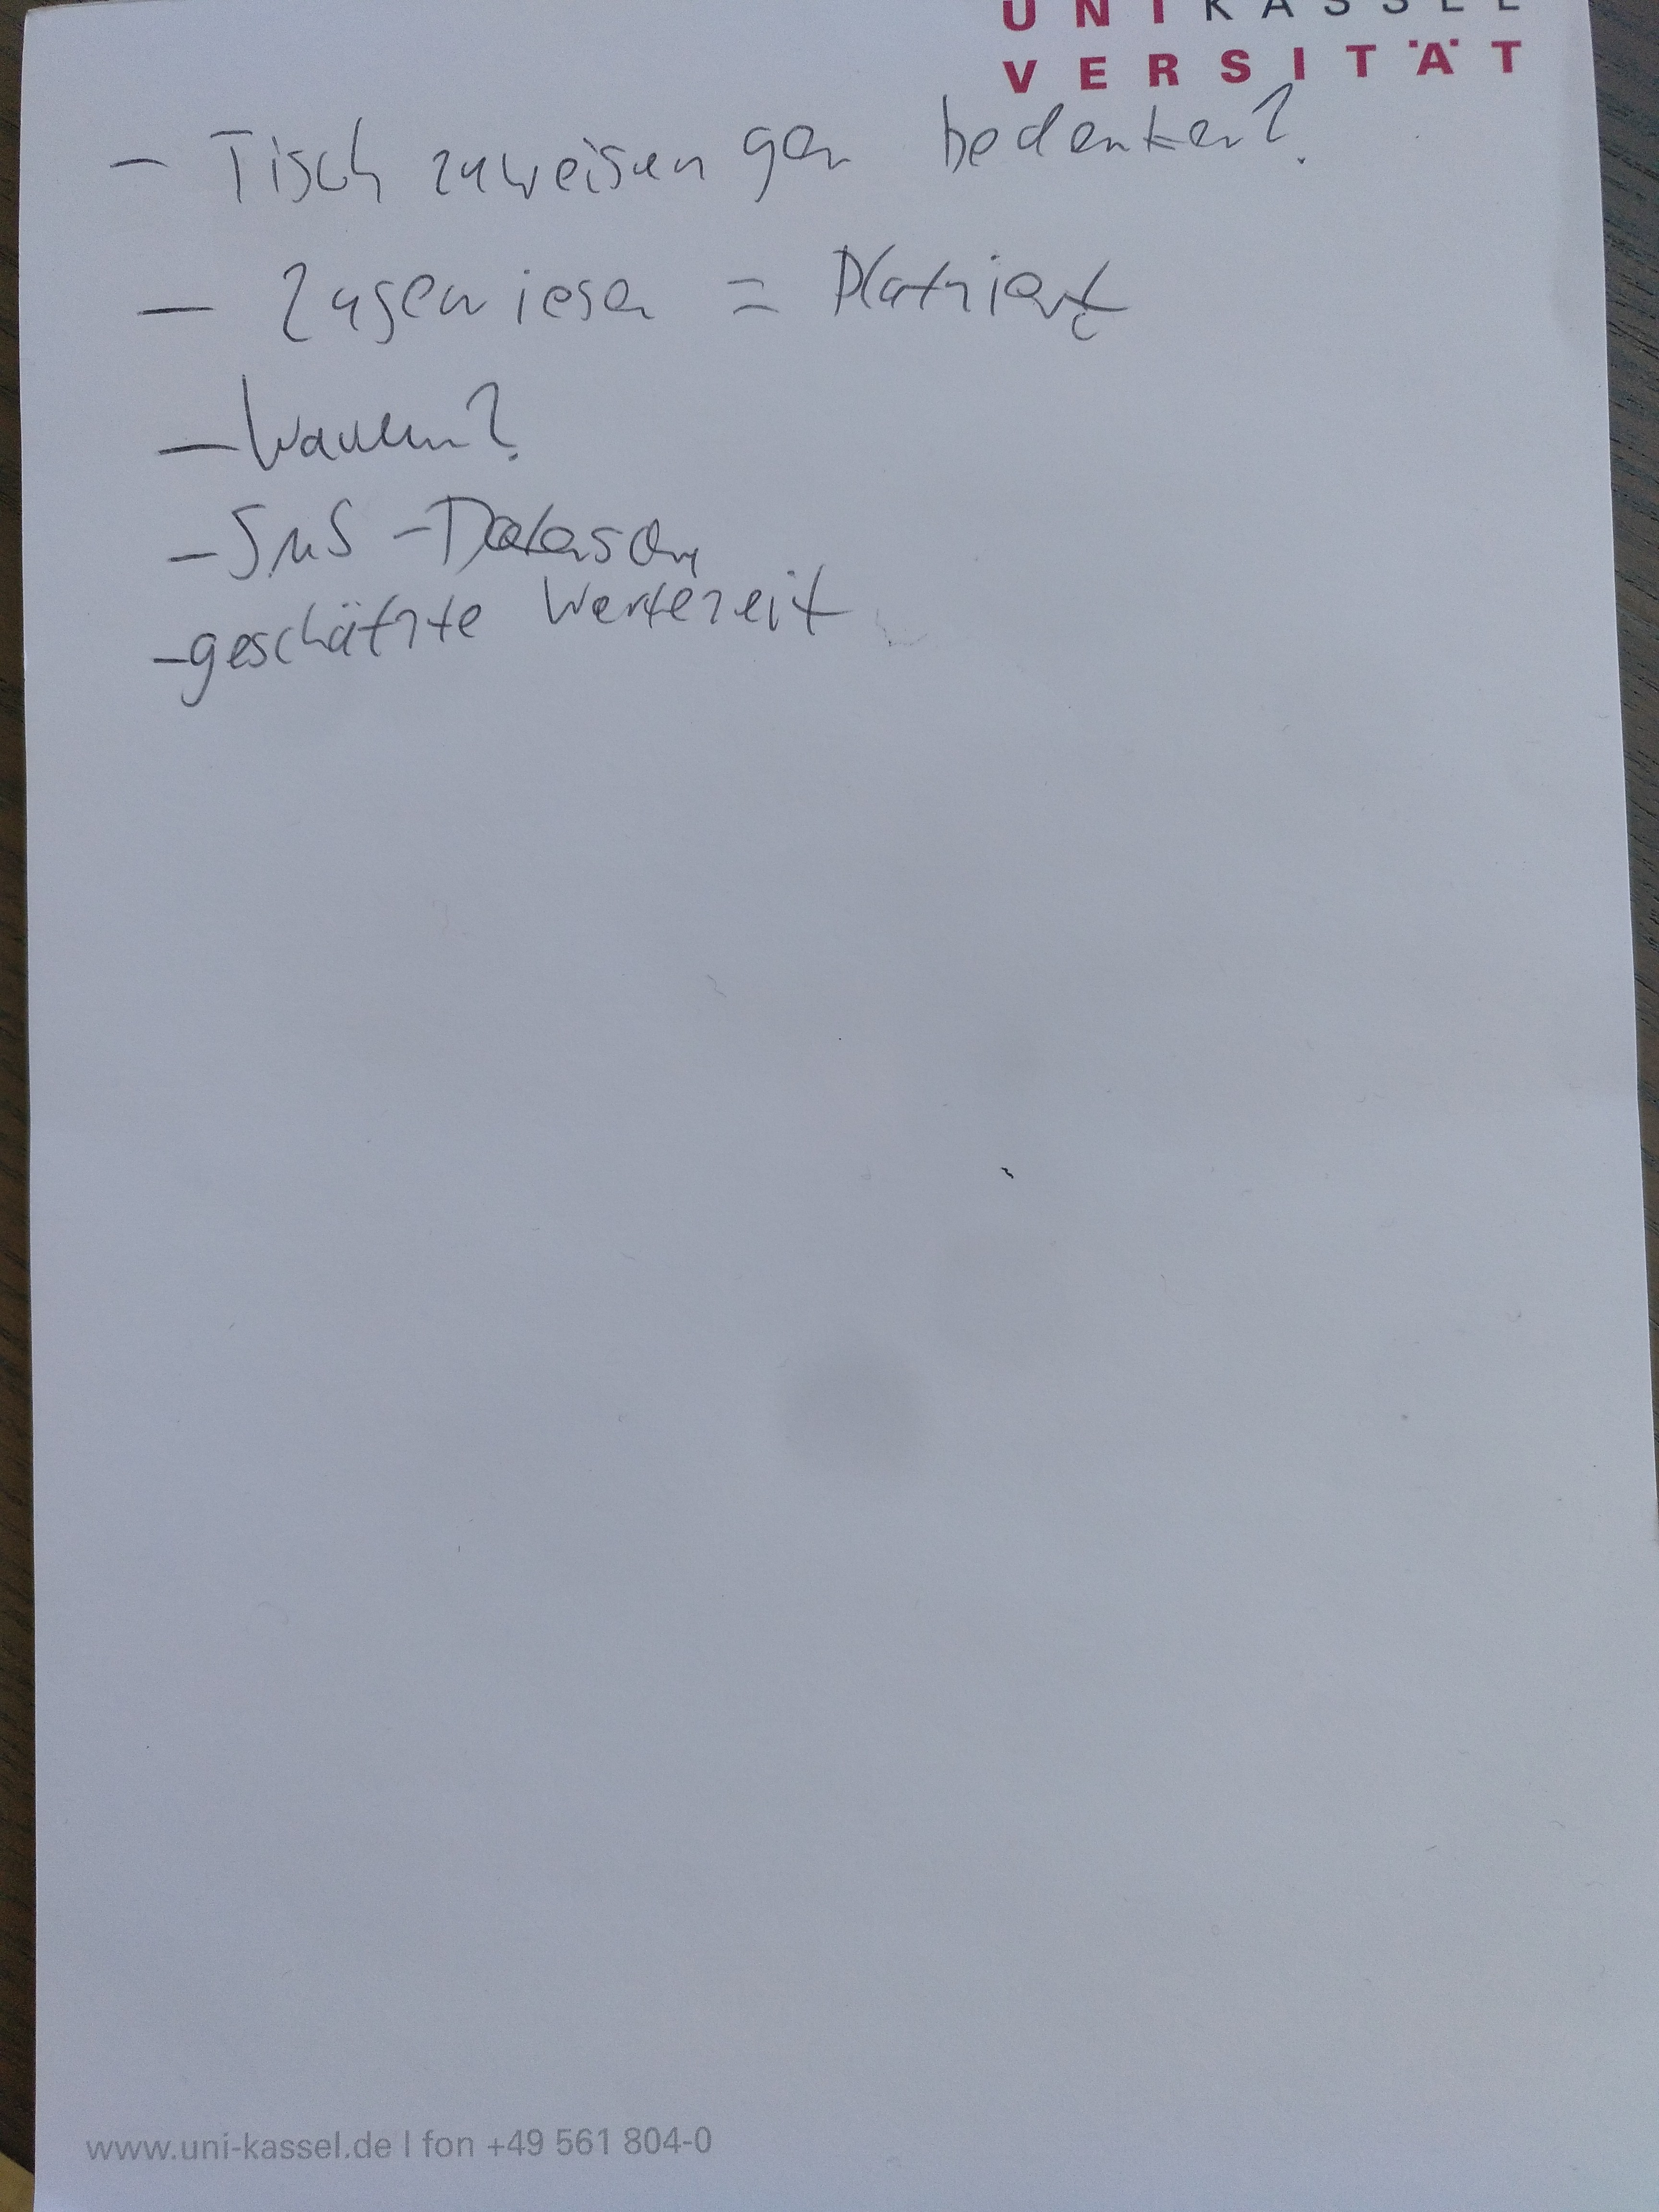 UNIKASSEL
VERSITÄT
- Tischzuweisungen bedenken?
- Zugewiesen = Platziert
- Warum?
- SMS -
- geschätzte Wartezeit
www.uni-kassel.de | fon +49 561 804-0